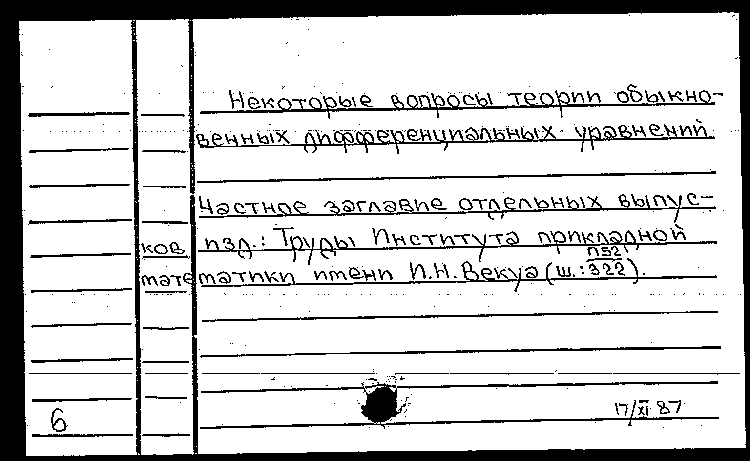 Некоторые вопросы теории обыкно-
венных дифференциальных уравнений.
Частное заглавие отдельных выпус-
ков изд.: Труды Института прикладной
математики имени И.Н. Векуа (ш.: П52/322).
6
17/XI 87